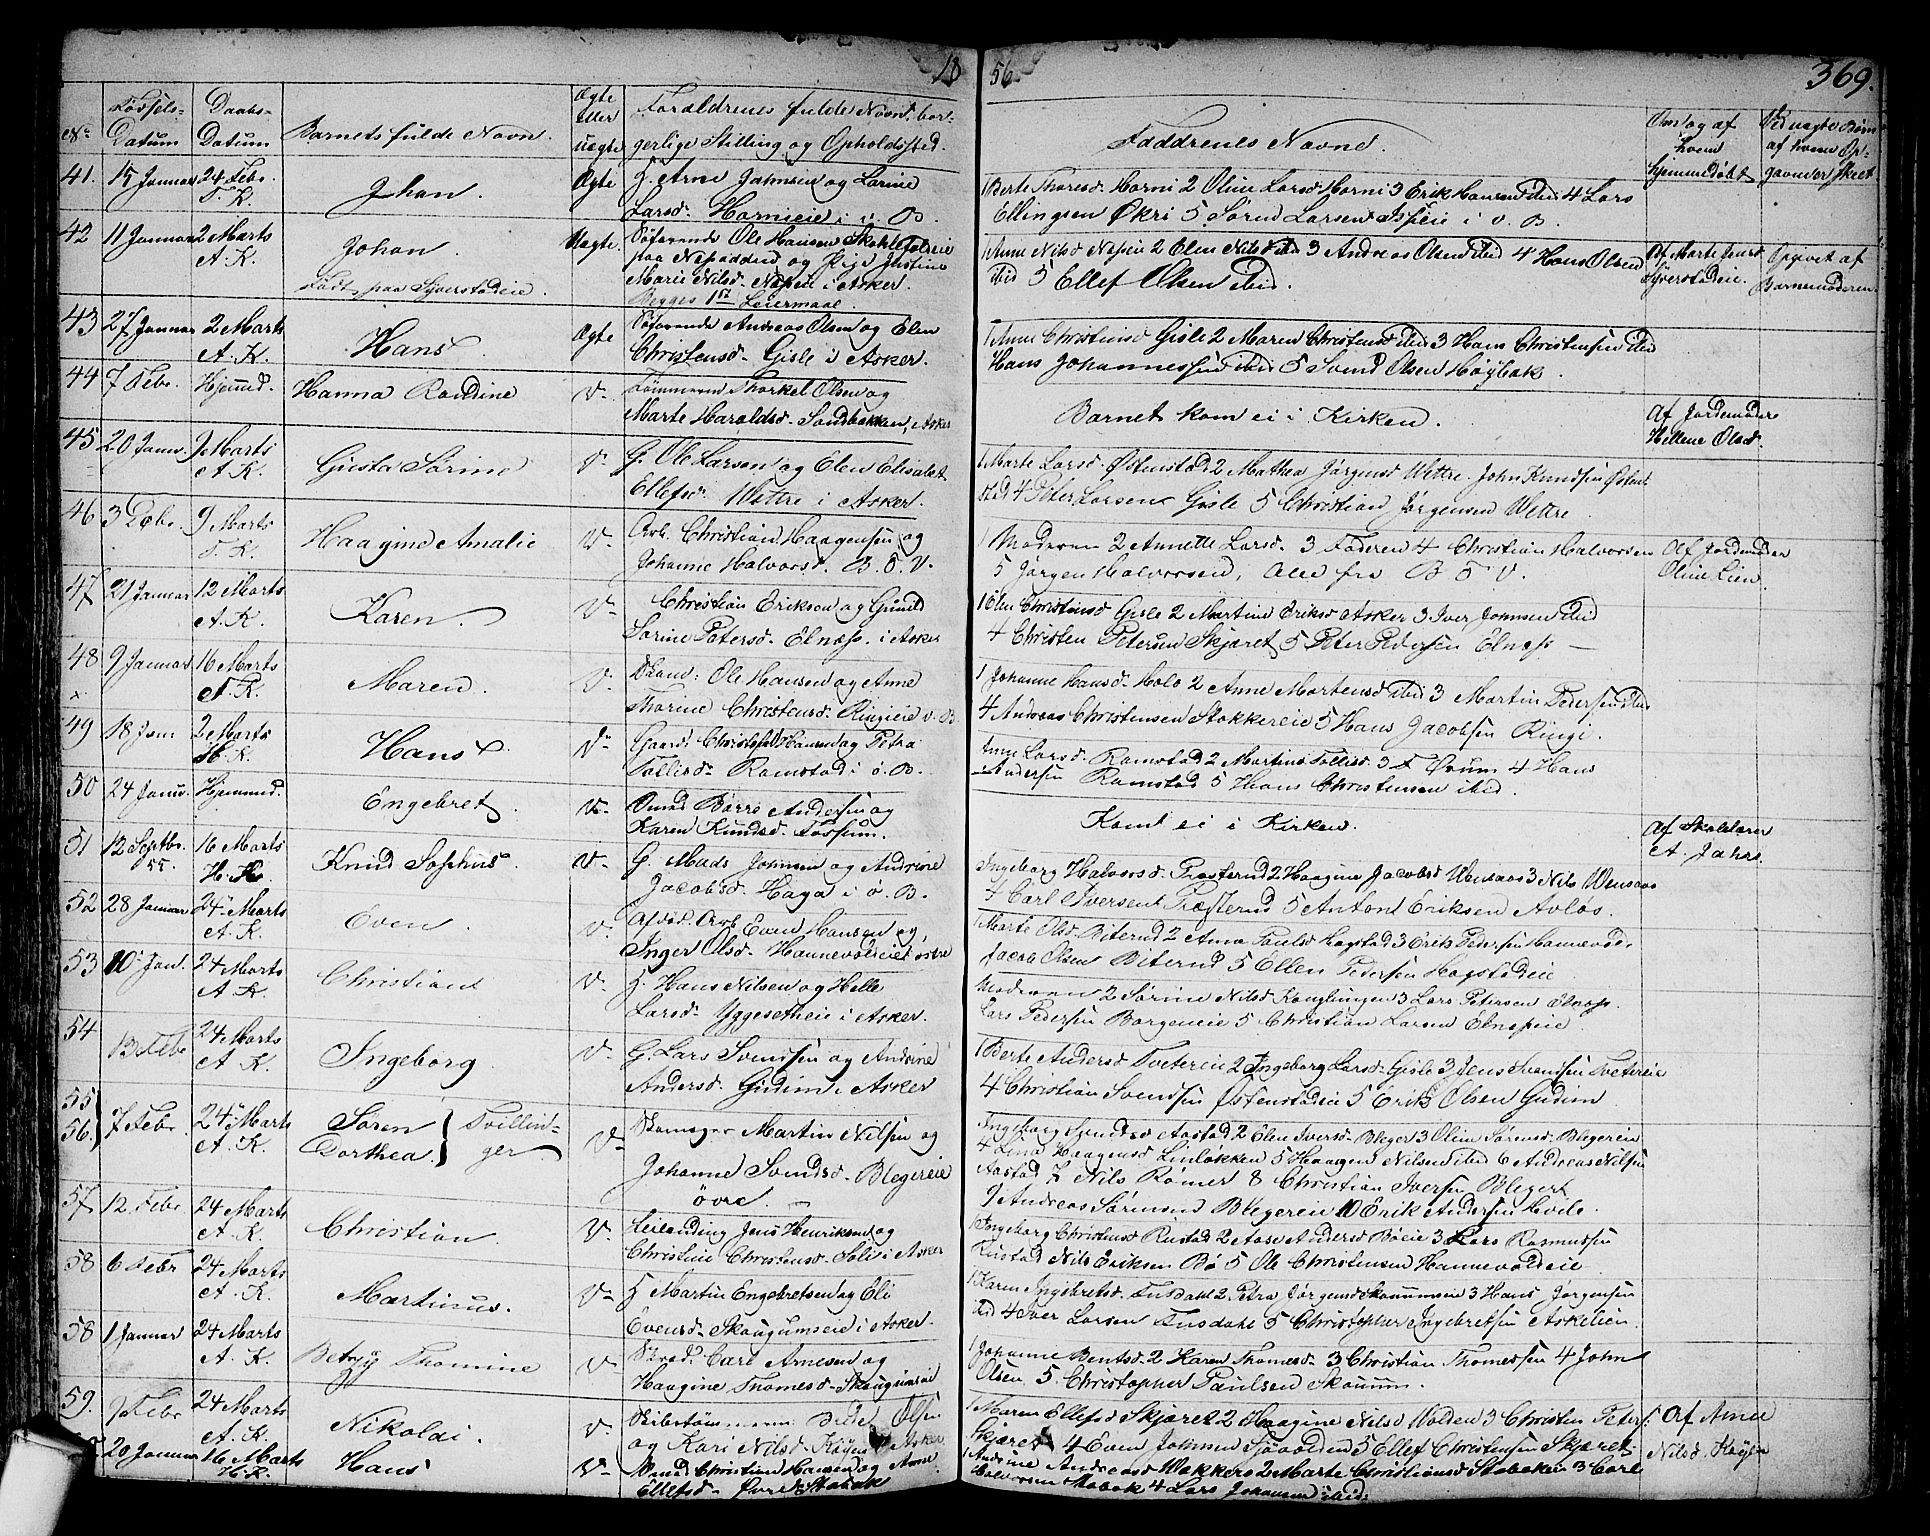 18
56
369.
No.
Fødsels-
Datum
Daabs-
Datum
Barnets fulde Navn.
Ægte
eller
uægte
Forældrenes fulde Navn, bor-
gerlige Stilling og Opholdssted.
Faddrenes Navne.
af
hvem
hjemmedøbt
Ved uægte Børn
af hvem Op-
gaven er skeet
41.
15 Januar
24 Febr.
T. K.
Johan
Ægte
G. Arne Jahnsen og Karine
Larsd. Hornieie i v. B.
1 Berte Thoresd. Horni 2 Oline Larsd Horni 3 Erik Hansen ibid 4 Lars
Ellingsen Økri 5 Søren Larsen i v. B.
42
11 Januar
2 Marts
A. K.
Johan.
Født paa Syverstadeie.
Uægte.
Søfarende Ole Hansen
paa Nesødden og Pige Justine
Marie Nilsd. Nesøen i Asker.
Begges 1st Leiermaal.
1 Anne Nilsd Nesøen 2 Elen Nilsd ibid 3 Andreas Olsen ibid 4 Hans Olsen
ibid 5 Ellef Olsen ibid.
Af Marte Jensd
Syverstadeie.
Opgivet af
Barnemoderen
43
27 Januar
2 Marts
A. K.
Hans
Ægte
Søfarende Andreas Olsen og Elen
Christensd. Gisle i Asker.
1 Anne Christensd Gisle 2 Maren Christensd ibid 3 Hans Christensen ibid
Hans Johannessen ibid 5 Svend Olsen Høybak.
44
7 Febr.
Hjemmed.
Hanna Randine
v.
Tømmermd Thorkel Olsen og
Marte Haraldsd. Sandbakken, i Asker
Barnet kom ei i Kirken.
Af Jordemoder
Hellene Olsd.
45
20 Janr.
9 Marts
A. K.
Gusta Sørine
v.
G. Ole Larsen og Elen Elisabet
Ellefsd. Wettre i Asker.
1 Marte Larsd. Østenstad 2 Mathea Jørgensd Wettre. John Knudsen Østen
stad 4 Peter Larsen Gisle 5 Christian Jørgensen Wettre
46
3 Debr.
9 Marts
T. K.
Haagine Amalie
v.
Arb. Christian Haagensen og
Johanne Halvorsd. B. S. V.
1 Moderen 2 Annette Larsd. 3 Faderen 4 Christian Halvorsen
5 Jørgen Halvorsen, Alle fra B S V.
Af Jordemoder
Oline Lien
47
21 Januar
12 Marts
A. K.
Karen.
v.
Christian Eriksen og Gunild
Sørine Petersd. Elnæss. i Asker
1 Elen Christensd Gisle 2 Martine Eriksd Asker 3 Iver Johnsen ibid
4 Christen Petersen Skjæret 5 Peter Elnæss
48
9 Januar
16 Marts
A. K.
Maren.
v.
Ole Hansen og Anne
Thorine Christensd. Ringieie v. B
1 Johanne Hansd. Holo 2 Anne Mortensd ibid 3 Martin Pedersen ibid
4 Andreas Christensen Stokkereie 5 Hans Jacobsen Ringi.
49
18 Jan
2 Marts
H. K.
Hans
v.
Gaard. Christopher Hansen og Petra
Tollefsd. Ramstad i ø. B.
Anne Larsd. Ramstad 2 Martine Tollefsd. 3 4 Hans
Andersen Ramstad 5 Hans Christensen ibid.
50
24 Janv.
Hjemmed.
Engebret
v.
Børre Andersen og
Karen Knudsd. Fossum.
Komt ei i Kirken.
Af Skolelærer
A. Jahre
51
12 Septbr.
55.
16 Marts
H. K.
Knud Sophus
v.
G. Mads Johnsen og Andrine
Jacobsd. Haga i ø. B.
Ingeborg Halvorsd. Præsterud 2 Haagine Jacobsd Wensaas 3 Nils Wensaas
4 Carl Iversen Præsterud 5 Anton Eriksen Avløs.
52
28 Januar
24 Marts
A. K.
Even
v.
Arb. Even Hansen og
Inger Olsd. Hannevoldeiet østre
1 Marte Olsd. Biterud 2 Anna Paulsd Hogstad 3 Erik Pedersen Hannevold.
Jacob Olsen Biterud 5 Ellen Petersen Hogstadeie
53
10 Jan.
24 Marts
A. K.
Christian
v.
H. Hans Nilsen og Helle
Larsd. Yggesetheie i Asker.
Moderen 2 Sørine Nilsd Konglungen 3 Lars Petersen Elnæss.
Lars Pedersen Borgeneie 5 Christian Larsen Elnæseie.
54
13 Febr
24 Marts
A K.
Ingeborg
v.
G. Lars Svendsen og Andrine
Andersd. Gudim i Asker
1 Berte Andersd Tvetereie 2 Ingeborg Larsd. Gisle 3 Jens Svensen Tvetereie
4 Christian Svendsen Østenstadeie 5 Erik Olsen Gudim
55
56.
7 Febr.
24 Marts
A. K.
Søren
Dorthea.
Tvillin-
ger
v.
Skomager Martin Nilsen og
Johanne Svendsd. Blegereie
øvre.
Ingeborg Svendsd Aastad 2 Elen Iversd. Bleger 3 Oline Sørensd. Blegereie
4 Lina Haagensd Linløkken 5 Haagen Nilsen ibid 6 Andreas Nilsen
Aastad 7 Nils Romer 8 Christian Iversen Bleger
9 Andreas Sørensen Blegereie 10 Erik Andersen Hvile.
57
12 Febr
24 Marts
A. K.
Christian
v.
Leilending Jens Henriksen og
Christine Christensd. Soli i Asker
1 Ingeborg Christensd Rustad 2 Aase Andersd Bøeie 3 Lars Rasmussen
Rustad Nils Eriksen Bø 5 Ole Christensen Hannevoldeie
58
6 Febr
24 Marts
A. K.
Martinus.
v.
H Martin Engebretsen og Eli
Evensd. Skougumseie i Asker.
1 Karen Ingebretsd. Fusdahl 2 Petra Jørgensd Skoumseie 3 Hans Jørgensen
ibid 4 Iver Larsen Fusdahl 5 Christopher Ingebretsen Askelien
58
1 Januar
24 Marts
A. K.
Betzy Thomine
v
Skræd. Carl Arnesen og
Haagine Thomesd. Skougumseie
1 Johanne Bentsd. 2 Karen Thomesd. 3 Christian Thomessen 4 John
Olsen 5. Christopher Paulsen Skoum.
59.
7 Febr
24 Marts
A. K.
Nikolai
v.
Olsen
og Kari Nilsd. i Asker
1 Maren Ellefsd Skjæret 2 Haagine Nilsd Wolden 3 Christen Peters
Skjæret 4 Even Johnsen 5 Ellef Christensen Skjæret.
Af Anne
Nilsd.
20 Januar
16 Marts
H. K.
Hans
v.
Christian Hansen og Anne
Ellefsd. Øvre Stabæk
1 Andrine Andreasd Wakkerø 2 Marte Christensd Stabæk 3 Carl
Halvorsen Stabæk 4 Lars Johansen ibid.